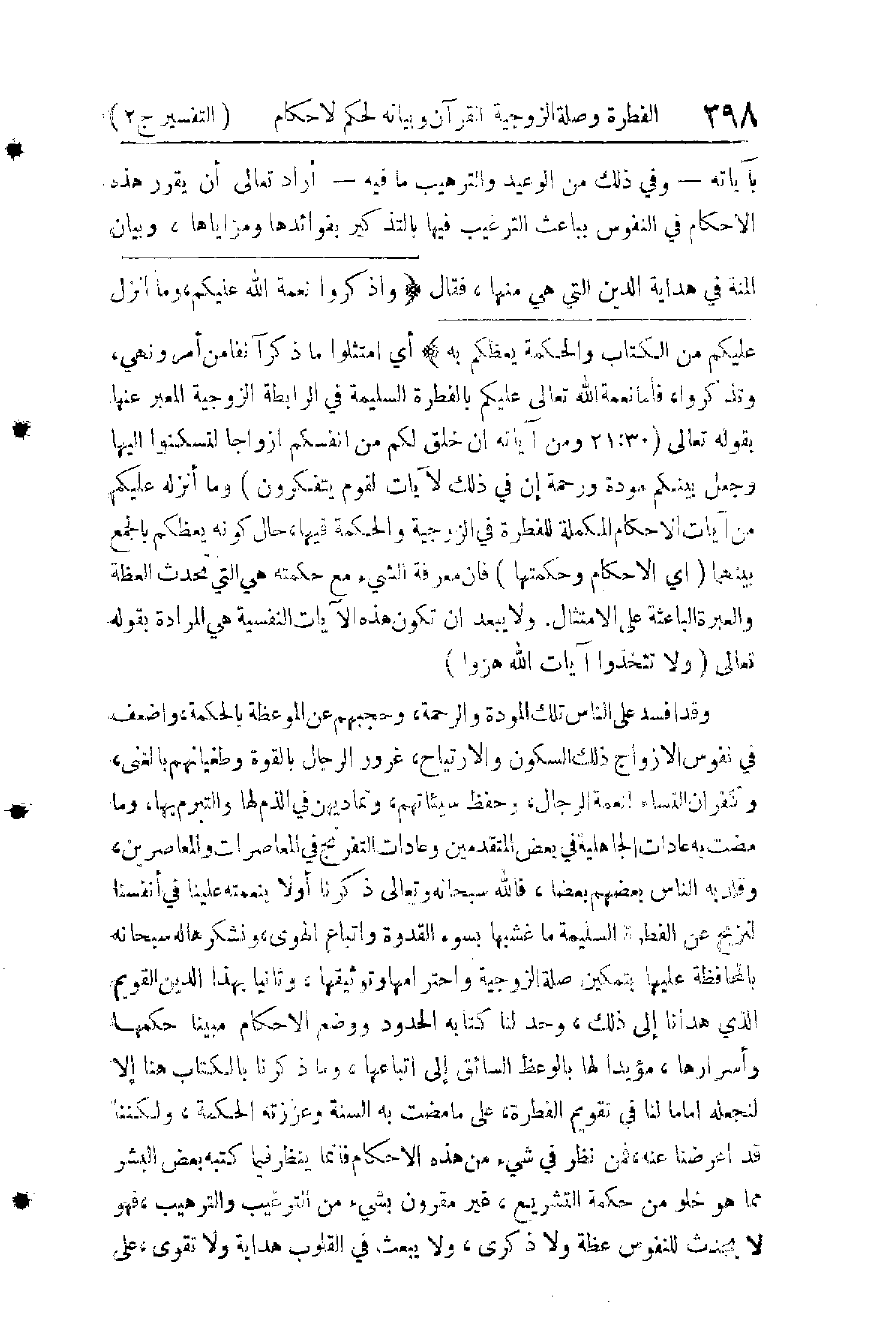 ٣٩٨ الفطرة وصلة الزوجية القرآن وبيانه لحكم لاحكام ( التفسير ج ٢ )
بآياته — وفي ذلك من الوعيد والترهيب ما فيه — أراد تعالى أن يقرر هذه
الاحكام في النفوس بباعث الترغيب فيها بالتذكير بفوائدها ومزاياها ، وبيان
المنة في هداية الدين التي هي منها ، فقال ﴿ واذكروا نعمة الله عليكم، وما أنزل
عليكم من الكتاب والحكمة يعظكم به ﴾ أي امتثلوا ما ذكر آنفا من أمر ونهي،
وتذكروا، فأما نعمة الله تعالى عليكم بالفطرة السليمة في الرابطة الزوجية المعبر عنها
بقوله تعالى (٢١:٣٠ ومن آياته ان خلق لكم من انفسكم ازواجا لتسكنوا اليها
وجعل بينكم مودة ورحمة إن في ذلك لآيات لقوم يتفكرون ) وما أنزله عليكم
من آيات الاحكام المكملة للفطرة في الزوجية والحكمة فيها، حال كونه يعظكم بالجمع
بينهما ( اي الاحكام وحكمتها ) فان معرفة الشيء مع حكمته هي التي تحدث العظة
والعبرة الباعثة على الامتثال. ولا يبعد ان تكون هذه الآيات النفسية هي المرادة بقوله
تعالى ( ولا تتخذوا آيات الله هزوا )
وقد افسد على الناس تلك المودة والرحمة، وحجبهم عن الموعظة بالحكمة، واضعف
في نفوس الازواج ذلك السكون والارتياح، غرور الرجال بالقوة وطغيانهم بالغنى،
وكفران النساء لنعمة الرجال، وحفظ سيئاتهم، وتماديهن في الذم لها والتبرم بها، وما
مضت به عادات الجاهلية في بعض المتقدمين وعادات التفرنج في المعاصرات والمعاصرين،
وقلد به الناس بعضهم بعضا ، فالله سبحانه وتعالى ذكرنا أولا بنعمته علينا في أنفسنا
لنزيح عن الفطرة السليمة ما غشيها بسوء القدوة واتباع الهوى، ونشكرها له سبحانه
بالمحافظة عليها بتمكين صلة الزوجية واحترامها وتوثيقها ، وثانيا بهذا الدين القويم
الذي هدانا إلى ذلك ، وحد لنا كتابه الحدود ووضع الاحكام مبينا حكمها
وأسرارها ، مؤيدا لها بالوعظ السائق إلى اتباعها ، وما ذكرنا بالكتاب هنا إلا
لنجعله اماما لنا في تقويم الفطرة، على ما مضت به السنة وعززته الحكمة ، ولكننا
قد اعرضنا عنه، فمن نظر في شيء من هذه الاحكام فانما ينظر فيما كتبه بعض البشر
مما هو خلو من حكمة التشريع ، غير مقرون بشيء من الترغيب والترهيب ، فهو
لا يحدث للنفوس عظة ولا ذكرى ، ولا يبعث في القلوب هداية ولا تقوى ، على